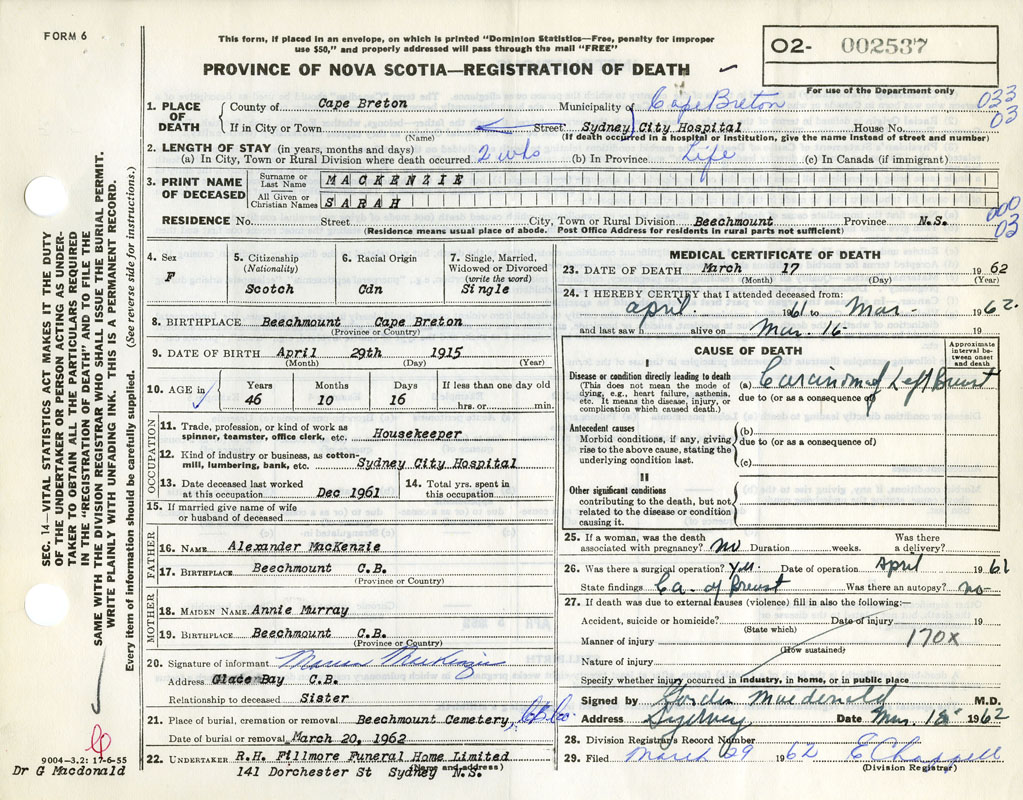 FORM 6
This form, if placed in an envelope, on which is printed "Dominion Statistics—Free, penalty for improper
use $50," and properly addressed will pass through the mail "FREE"
PROVINCE OF NOVA SCOTIA—REGISTRATION OF DEATH
O2- 002537
For use of the Department only
033
03
1. PLACE OF DEATH
County of Cape Breton Municipality of Cape Breton
If in City or Town (Name) Street Sydney City Hospital House No.
(If death occurred in a hospital or institution, give the name instead of street and number)
2. LENGTH OF STAY (in years, months and days)
(a) In City, Town or Rural Division where death occurred 2 wks (b) In Province Life (c) In Canada (if immigrant)
3. PRINT NAME OF DECEASED
Surname or Last Name MACKENZIE
All Given or Christian Names SARAH
RESIDENCE No. Street City, Town or Rural Division Beechmount Province N.S.
(Residence means usual place of abode. Post Office Address for residents in rural parts not sufficient)
000
03
4. Sex
F
5. Citizenship
(Nationality)
Scotch
6. Racial Origin
Cdn
7. Single, Married,
Widowed or Divorced
(write the word)
Single
8. BIRTHPLACE Beechmount Cape Breton
(Province or Country)
9. DATE OF BIRTH April 29th 1915
(Month) (Day) (Year)
10. AGE in
Years Months Days If less than one day old
46 10 16 hrs. or min.
OCCUPATION
11. Trade, profession, or kind of work as
spinner, teamster, office clerk, etc. Housekeeper
12. Kind of industry or business, as cotton-
mill, lumbering, bank, etc. Sydney City Hospital
13. Date deceased last worked
at this occupation Dec 1961
14. Total yrs. spent in
this occupation
15. If married give name of wife
or husband of deceased
FATHER
16. NAME Alexander MacKenzie
17. BIRTHPLACE Beechmount C.B.
(Province or Country)
MOTHER
18. MAIDEN NAME Annie Murray
19. BIRTHPLACE Beechmount C.B.
(Province or Country)
20. Signature of informant MacKenzie
Address Glace Bay C.B.
Relationship to deceased Sister
21. Place of burial, cremation or removal Beechmount Cemetery, C.B. Co.
Date of burial or removal March 20, 1962
22. UNDERTAKER R.H. Fillmore Funeral Home Limited
(Name and address)
141 Dorchester St Sydney N.S.
MEDICAL CERTIFICATE OF DEATH
23. DATE OF DEATH March 17 1962
(Month) (Day) (Year)
24. I HEREBY CERTIFY that I attended deceased from:
april 1961 to Mar - 1962.
and last saw h alive on Mar. 16-
CAUSE OF DEATH
Approximate interval between onset and death
I
Disease or condition directly leading to death
(This does not mean the mode of
dying, e.g., heart failure, asthenia,
etc. It means the disease, injury, or
complication which caused death.)
(a) Carcinoma of Left Breast
due to (or as a consequence of)
Antecedent causes
Morbid conditions, if any, giving
rise to the above cause, stating the
underlying condition last.
(b)
due to (or as a consequence of)
(c)
II
Other significant conditions
contributing to the death, but not
related to the disease or condition
causing it.
25. If a woman, was the death
associated with pregnancy? no Duration weeks. Was there
a delivery?
26. Was there a surgical operation? Yes. Date of operation April 1961
State findings Ca. of Breast Was there an autopsy? no
27. If death was due to external causes (violence) fill in also the following:—
Accident, suicide or homicide? Date of injury 19
(State which)
Manner of injury 170X
(How sustained)
Nature of injury
Specify whether injury occurred in industry, in home, or in public place
Signed by Gordon Macdonald M.D.
Address Sydney Date Mar. 18 1962
28. Division Registrar's Record Number
29. Filed March 29 1962 E Chappell
(Division Registrar)
SEC. 14—VITAL STATISTICS ACT MAKES IT THE DUTY
OF THE UNDERTAKER OR PERSON ACTING AS UNDER-
TAKER TO OBTAIN ALL THE PARTICULARS REQUIRED
IN THE "REGISTRATION OF DEATH" AND TO FILE THE
SAME WITH THE DIVISION REGISTRAR WHO SHALL ISSUE THE BURIAL PERMIT.
WRITE PLAINLY WITH UNFADING INK. THIS IS A PERMANENT RECORD.
Every item of information should be carefully supplied. (See reverse side for instructions.)
9004—3.2: 17-6-55
Dr G Macdonald